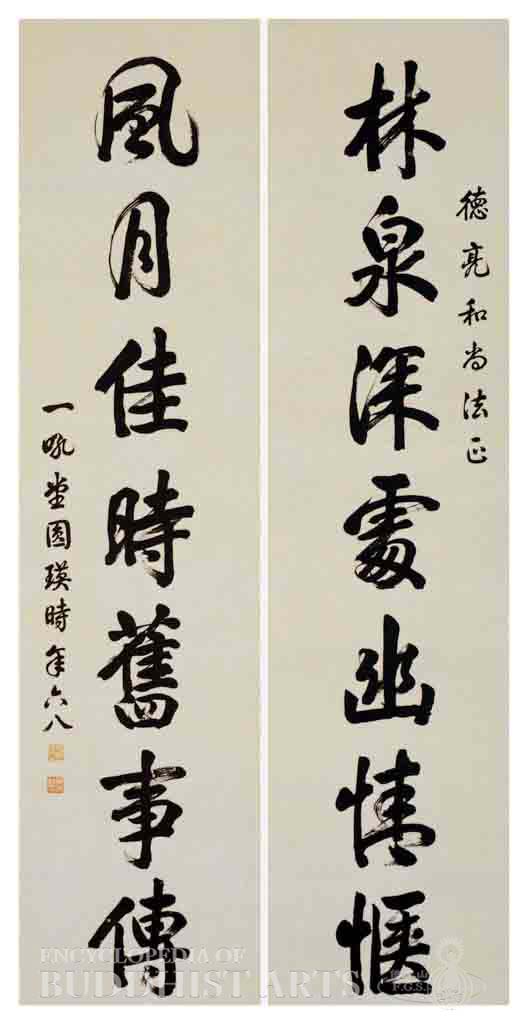 德亮和尚法正
林泉深處幽情愜
風月佳時舊事傳
一吼堂圓瑛時年六八
ENCYCLOPEDIA OF
BUDDHIST ARTS
F.G.S.